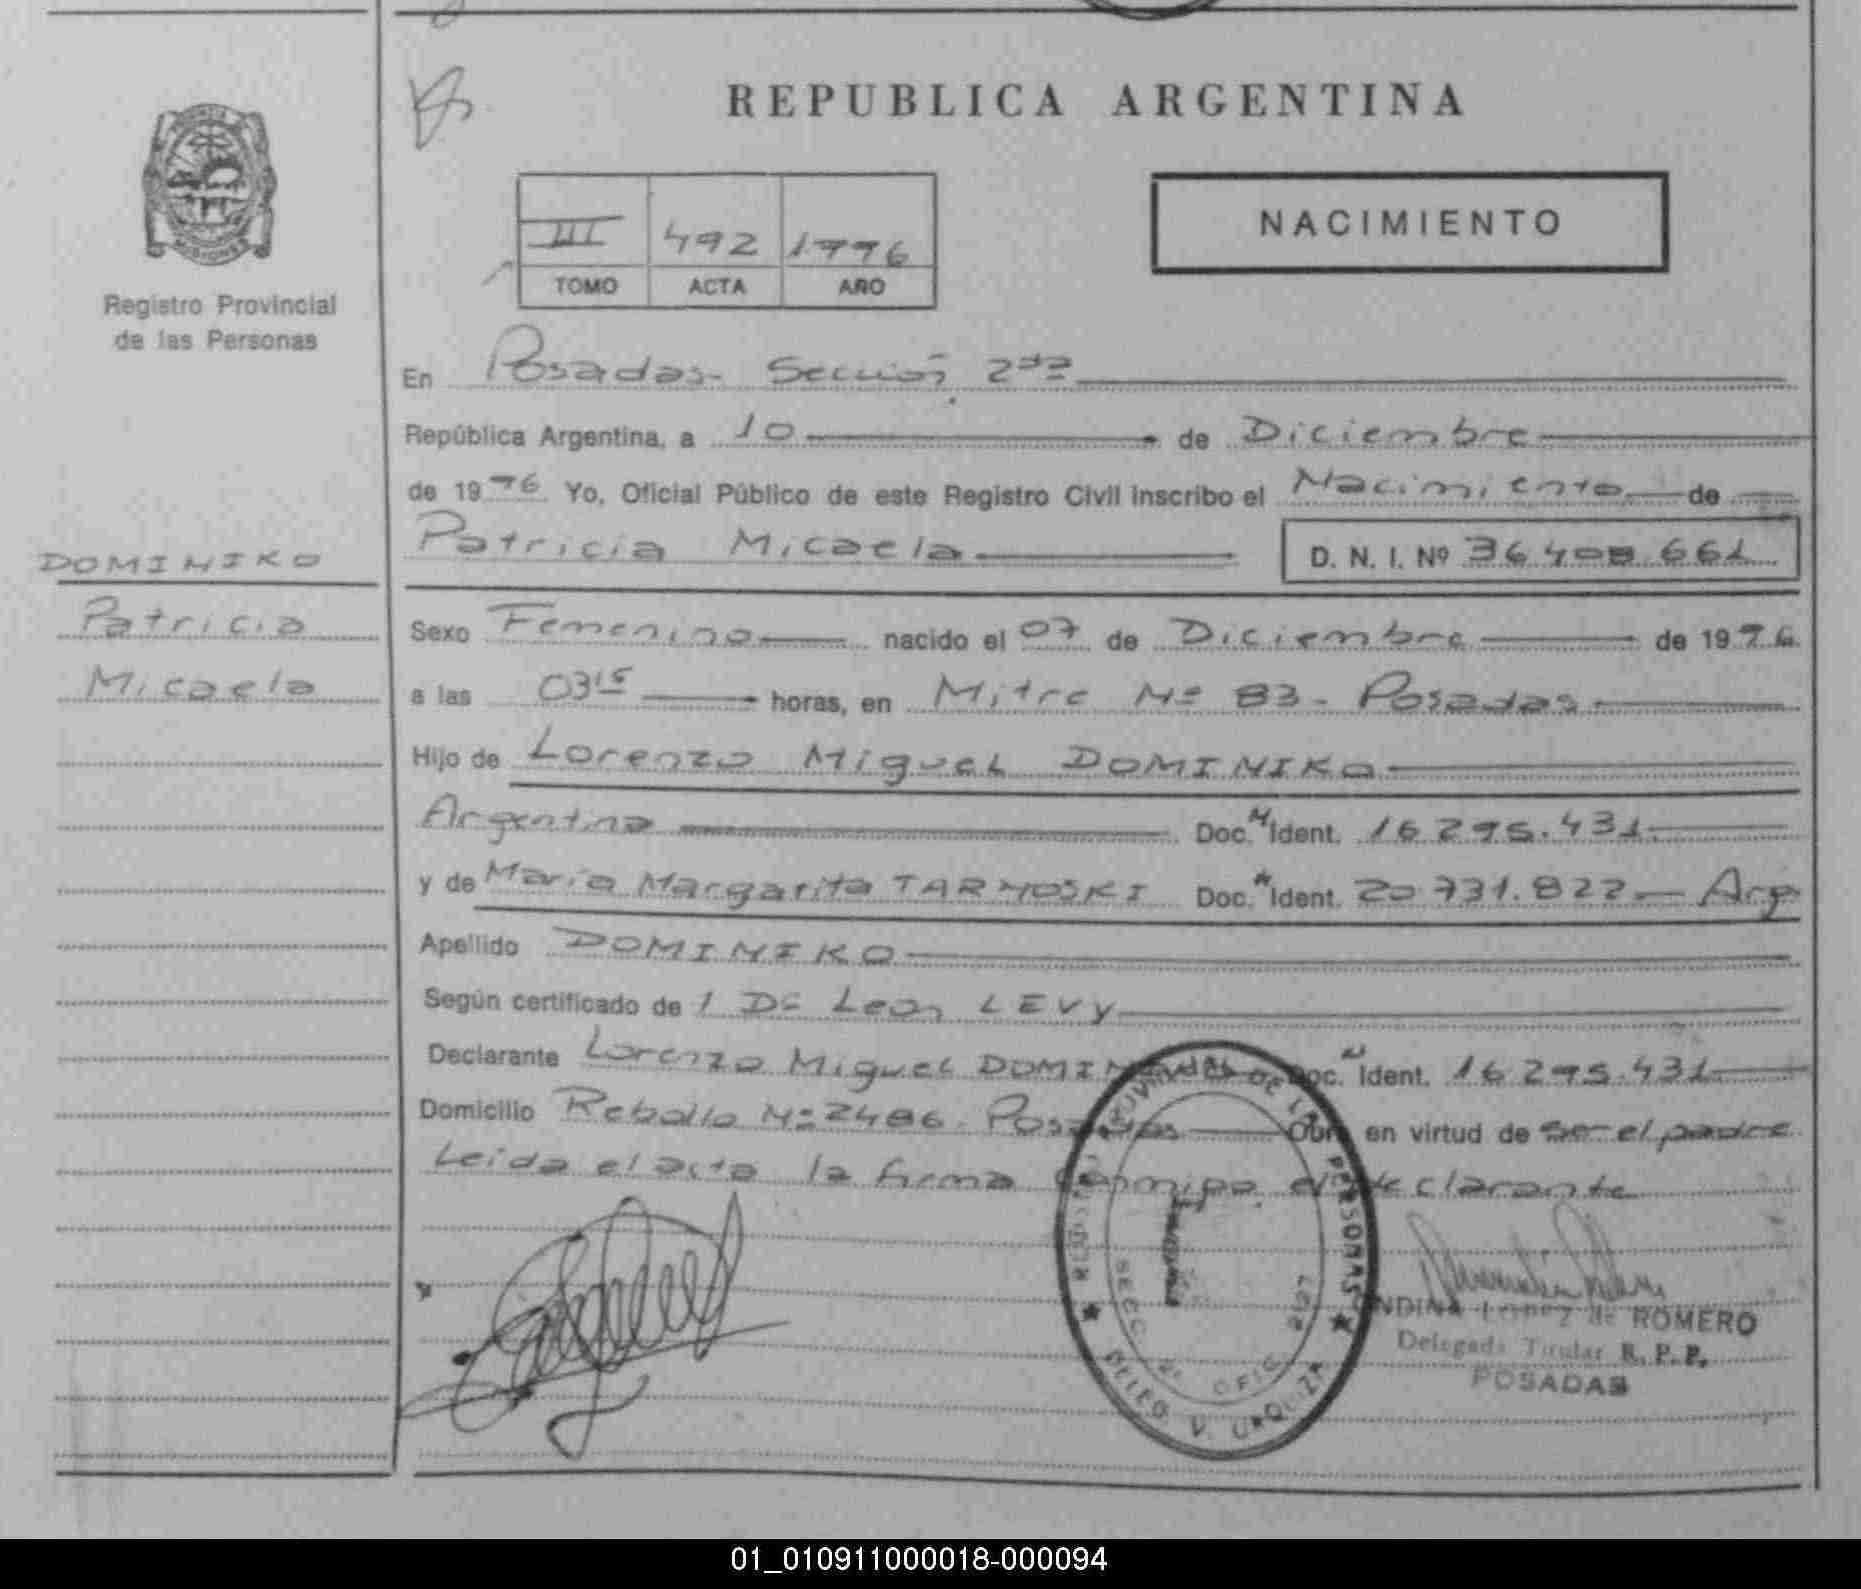 REPUBLICA ARGENTINA
III 492 1996
TOMO ACTA AÑO
NACIMIENTO
Registro Provincial
de las Personas
DOMINIKO
Patricia
Micaela
En Posadas- Sección 2da
República Argentina, a 10 de Diciembre
de 1996 Yo, Oficial Público de este Registro Civil inscribo el Nacimiento de
Patricia Micaela D. N. I. Nº 36.408.661
Sexo Femenino nacido el 07 de Diciembre de 1996
a las 0315 horas, en Mitre Nº 83 - Posadas
Hijo de Lorenzo Miguel DOMINIKO
Argentina Doc. N Ident. 16.295.431
y de María Margarita TARNOSKI Doc. Ident. 20.731.822 - Arg
Apellido DOMINIKO
Según certificado de 1 Dr Leon LEVY
Declarante Lorenzo Miguel DOMINIKO Doc. N Ident. 16.295.431
Domicilio Rebollo Nº 2486 - Posadas Obra en virtud de ser el padre
Leida el acta la firma conmigo el declarante
REGISTRO PROVINCIAL DE LAS PERSONAS
SECC. OFIC.
DELEG V. URQUIZA
LOPEZ de ROMERO
Delegada Titular R. P. P.
POSADAS
01_010911000018-000094